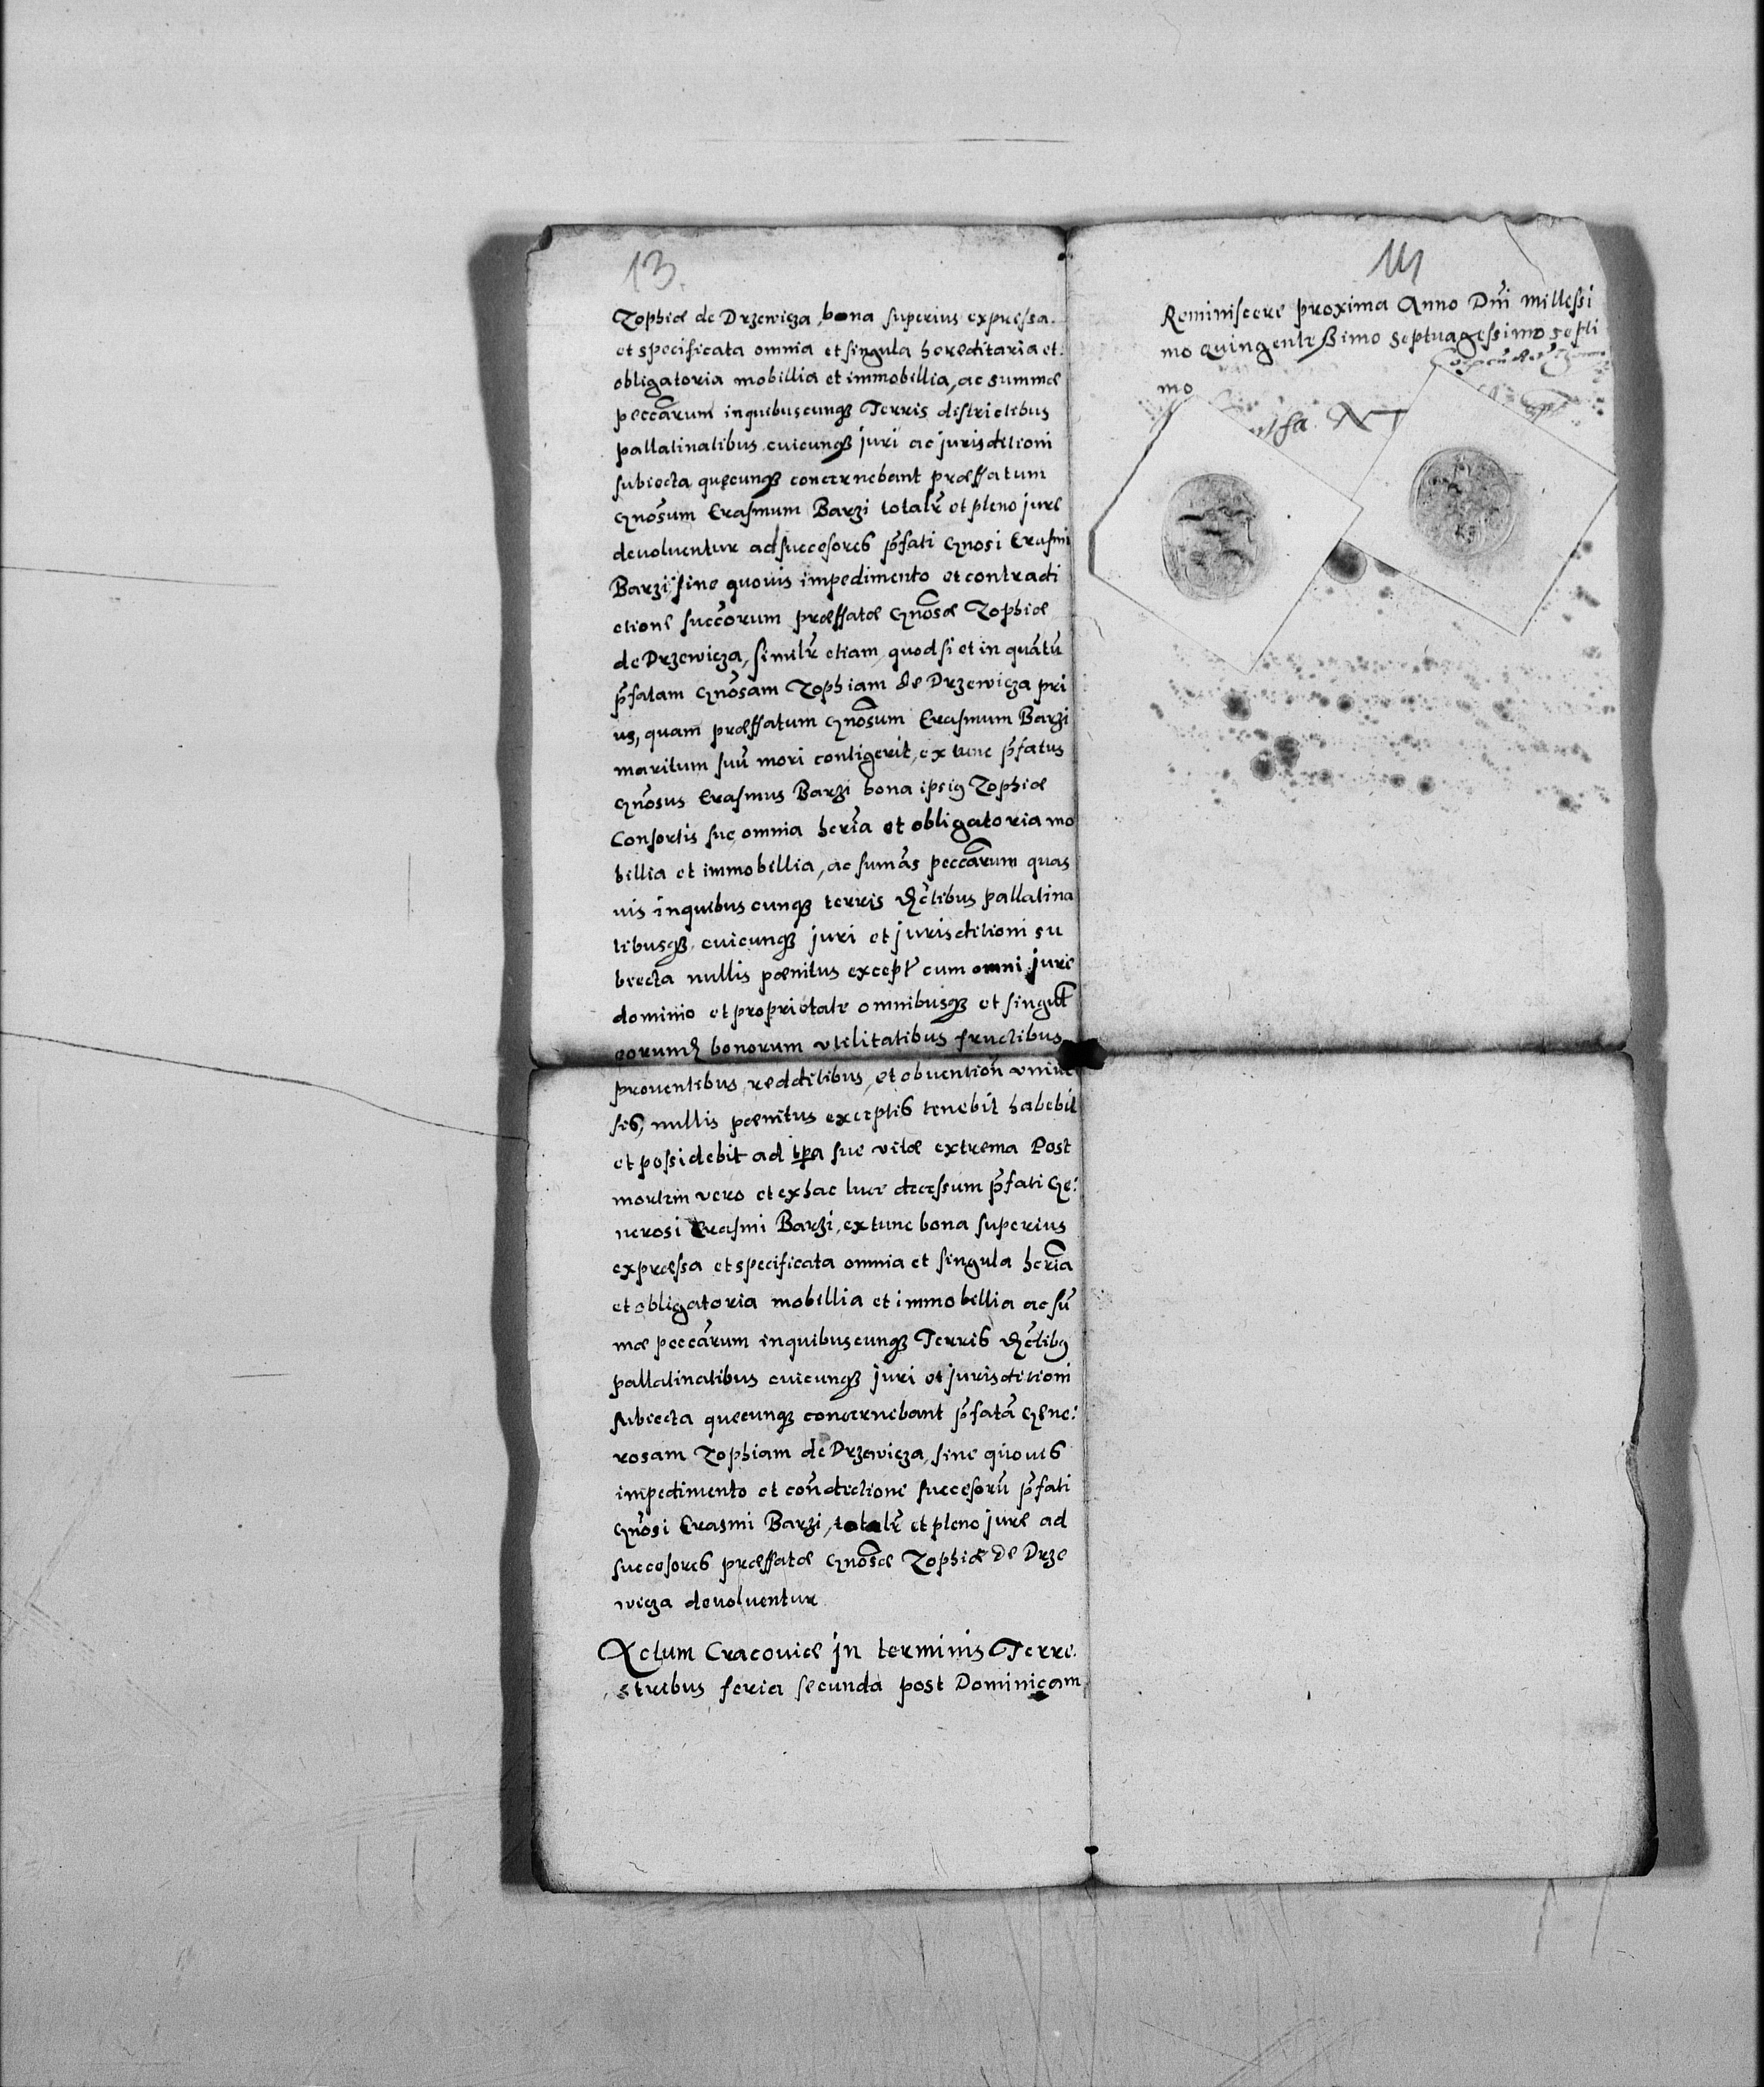 13.
Zophiæ de Drzewicza, bona superius expressa.
et specificata omnia et singula hereditaria et
obligatoria mobillia et immobillia, ac summæ
peccarum inquibuscunqȝ Terris districtibus
pallatinatibus cuicunqȝ juri ac jurisditioni
subiecta quęcunqȝ concernebant præffatum
Gnosum Erasmum Barzi totalr et pleno jure
devoluentur ad succesores pfati Gnosi Erasmi
Barzi sine quovis impedimento et contradi
ctione succorum præffatæ Gnosæ Zophiæ
de Drzewicza, similr etiam, quod si et in quātū
pfatam Gnosam Zophiam de Drzewicza pri
us, quam præffatum Gnosum Erasmum Barzi
maritum suū mori contigerit, ex tunc pfatus
Gnosus Erasmus Barzi bona ipsiꝰ Zophiæ
Consortis suę omnia heria et obligatoria mo
billia et immobillia, ac sumas peccarum quas
vis inquibus cunqȝ terris dictibus pallatina
tibusqȝ cuicunqȝ juri et jurisditioni su
biecta nullis pænitus except cum omni jure
dominio et proprietate omnibusqȝ et singul
eorumd bonorum vtilitatibus fructibus
proventibus, redditibus, et obvention univer
sis, nullis pænitus exceptis tenebit habebit
et possidebit ad tpa sue vitæ extrema Post
mortem vero et exhac luce decessum pfati Ge:
nerosi Erasmi Barzi, extunc bona superius
expressa et specificata omnia et singula heria
et obligatoria mobillia et immobillia ac sū
mæ peccarum inquibuscunqȝ Terris dictibꝰ
pallatinatibus cuicunqȝ juri et jurisditioni
subiecta quecunqȝ concernebant pfatā Gene:
rosam Zophiam de Drzewicza, sine quovis
impedimento et condictione succesorū pfati
Gnosi Erasmi Barzi, totalr et pleno jure ad
succesores præffatæ Gnosæ Zophiæ de Drze
wicza devoluentur
Actum Cracoviæ jn terminis Terre.
stribus feria secunda post Dominicam
14
Reminiscere proxima Anno Dni millessi
mo Quingentessimo septuagessimo septi
mo